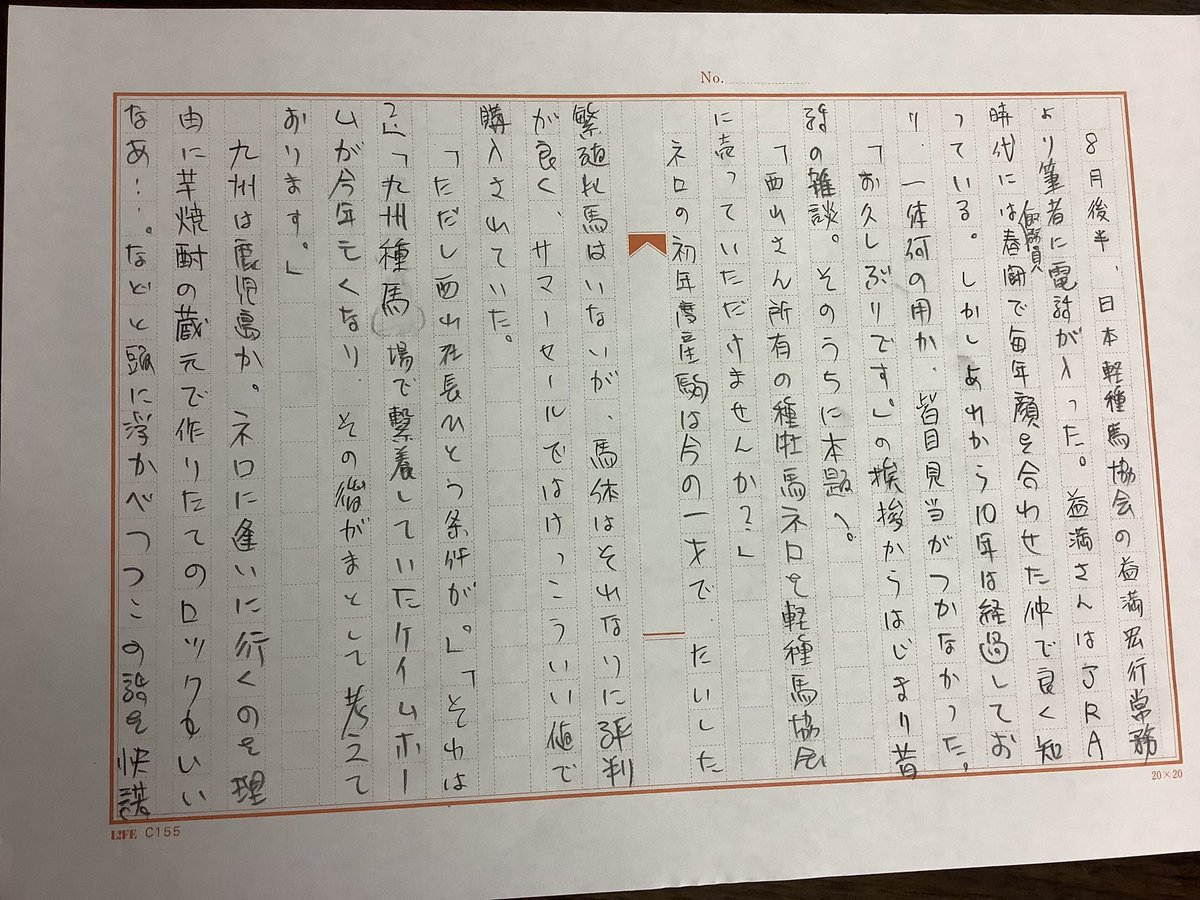 No.
８月後半、日本軽種馬協会の益満宏行常務
より筆者に電話が入った。益満さんはＪＲＡ
時代には春闘で毎年顔を合わせた仲で良く知
っている。しかしあれから10年は経過してお
り、一体何の用か、皆目見当がつかなかった。
「お久しぶりです。」の挨拶からはじまり昔
話の雑談。そのうちに本題へ。
「西山さん所有の種牡馬ネロを軽種馬協会
に売っていただけませんか？」
ネロの初年度産駒は今の一才で、たいした
繁殖牝馬はいないが、馬体はそれなりに評判
が良く、サマーセールではけっこういい値で
購入されていた。
「ただし西山社長ひとつ条件が。」「それは
「九州種馬場で繋養していたケイムホー
ムが今年亡くなり、その後がまとして考えて
おります。」
九州は鹿児島か。ネロに逢いに行くのを理
由に芋焼酎の蔵元で作りたてのロックもいい
なあ…。などと頭に浮かべつつこの話を快諾
20×20
LIFE C155